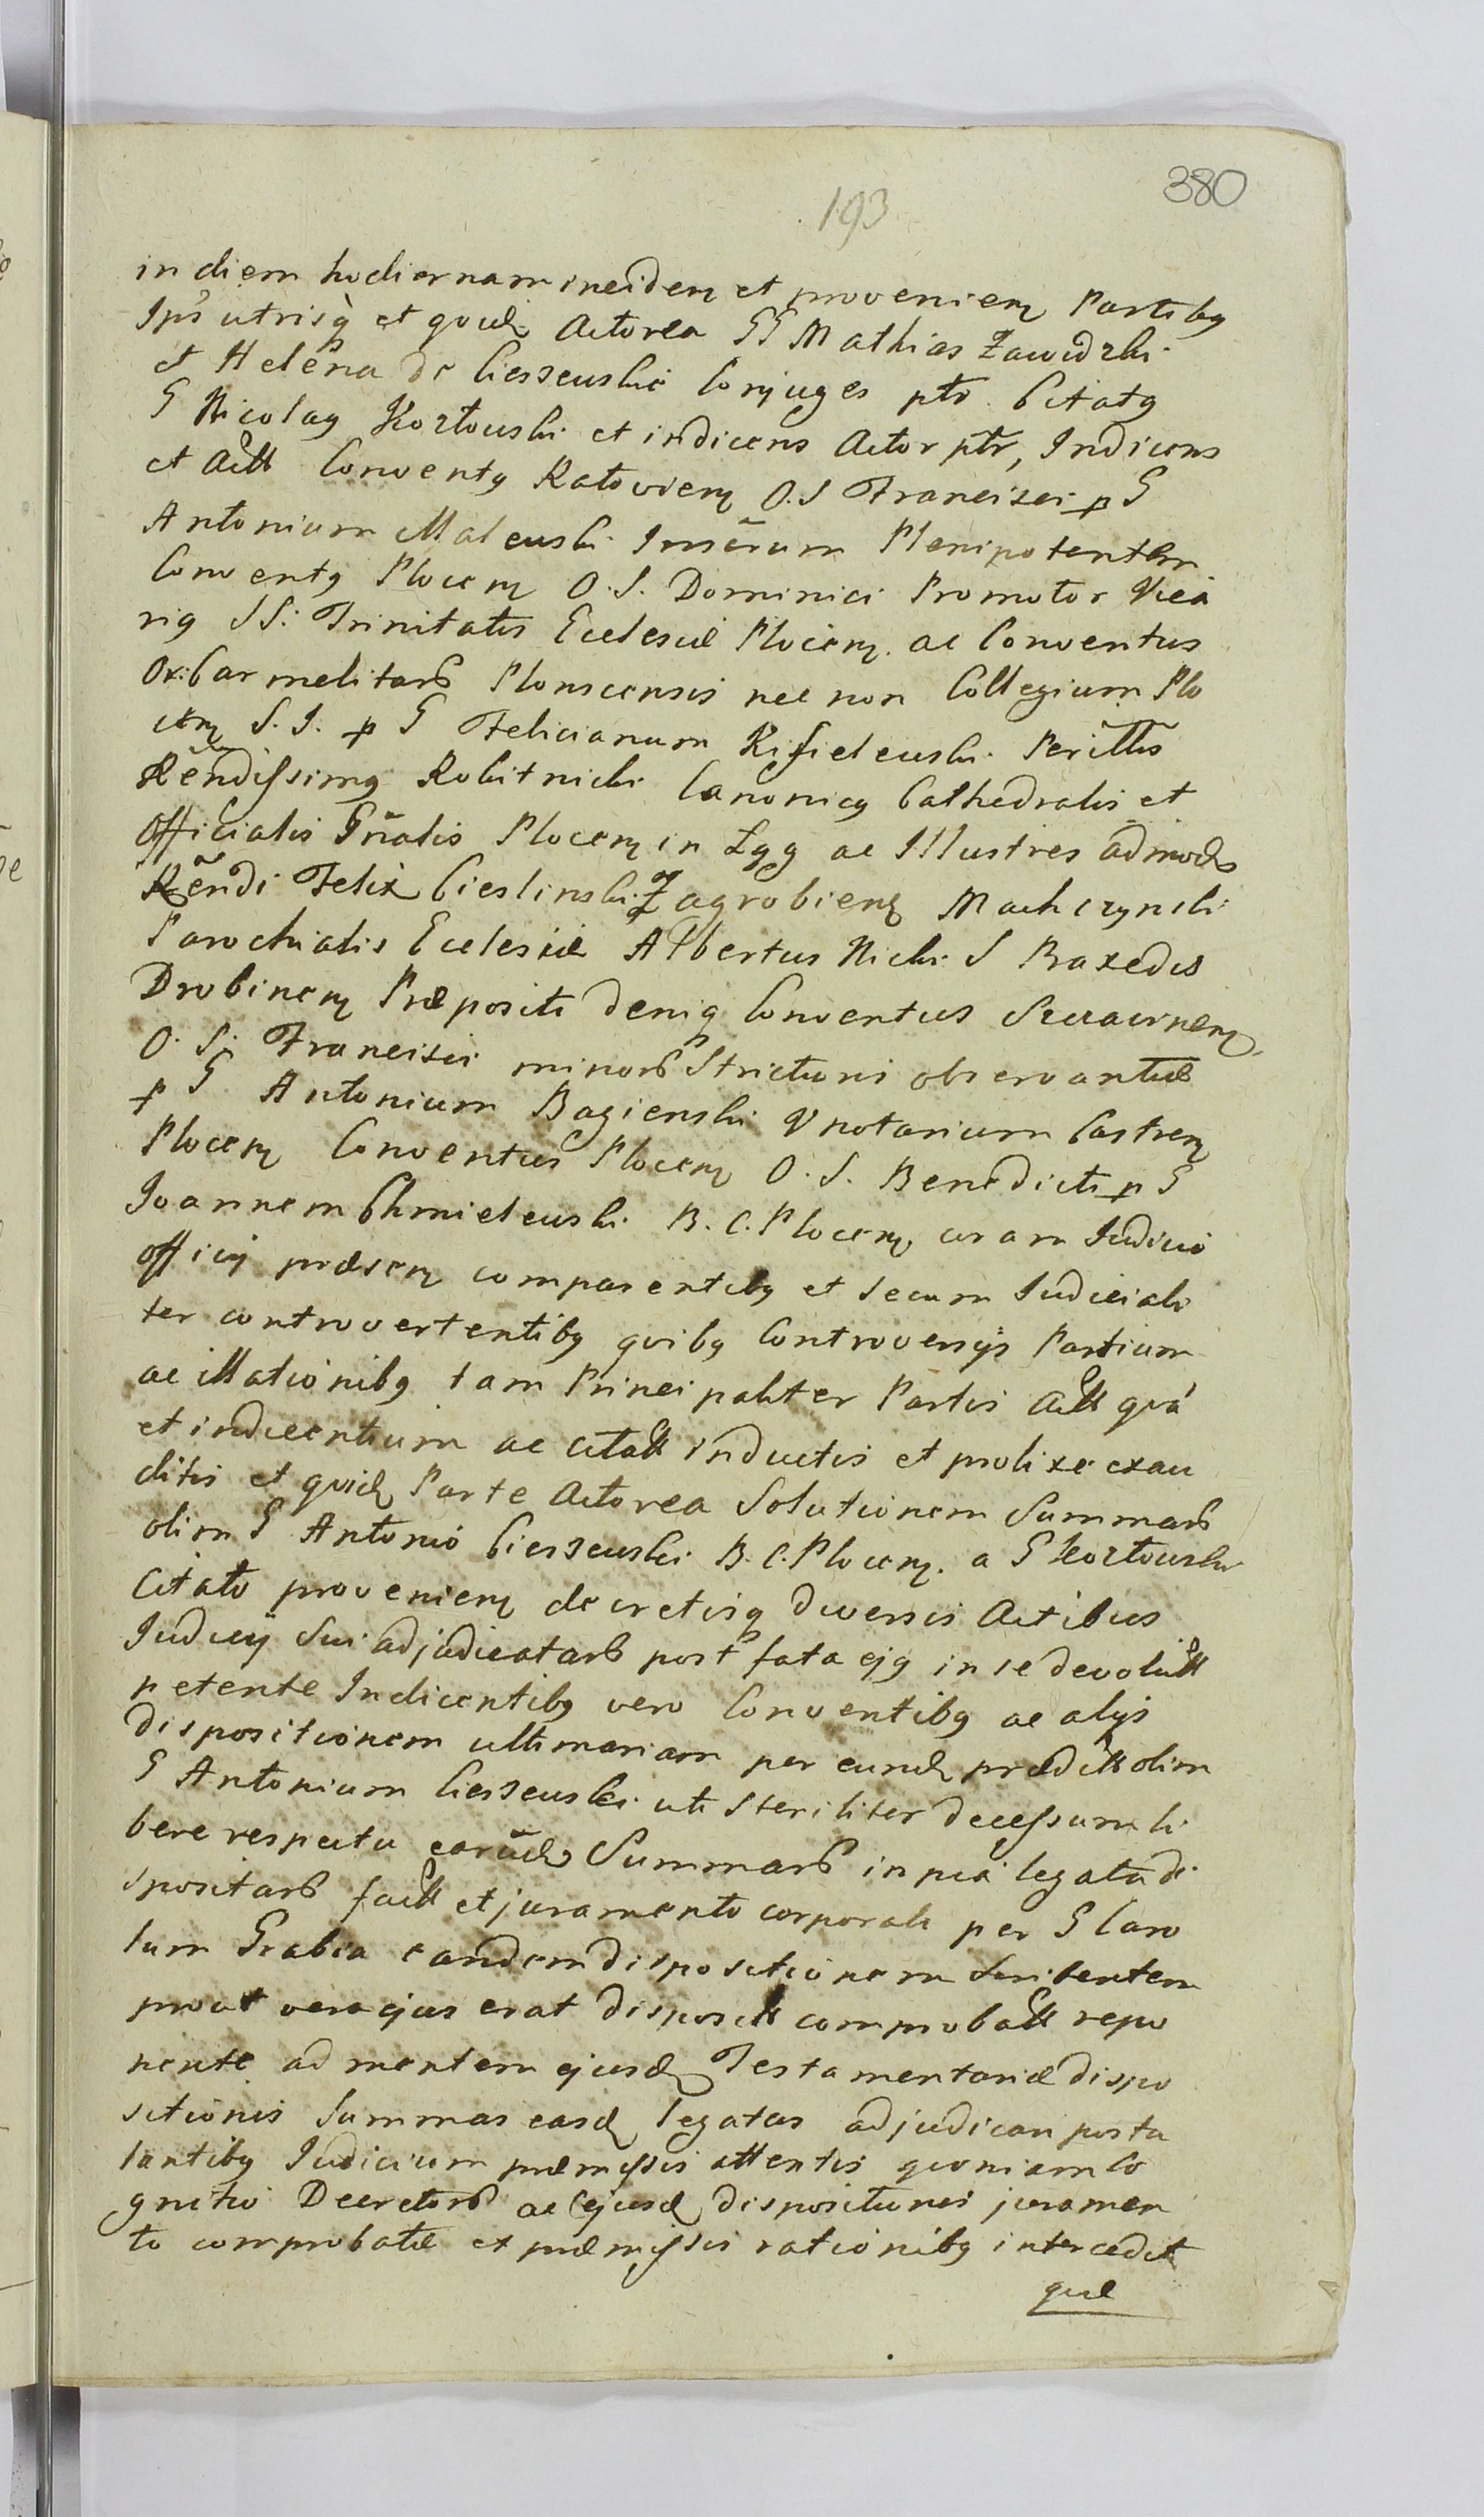 193
380
in diem hodiernam incidem et proveniem Partibg
Ips utrisq̀ et quid Actorea GG Mathias Zawidzki
et Helena de Ciesseuskie Conjuges ptr. Citatg
G Nicolag Koztouski et indicens Actor ptr, Indicens
et Actt Conventg Ratoviem O. S Francisci p G
Antonium Maleuski Inscrum Plenipotentem
Conventg Plocem O. S. Dominici Promotor Vica
rig SS: Trinitatis Ecclesiæ Plocem. ac Conventus
Or: Carmelitarū Plonscensis nec non Collegium Plo
cem S. J. p G Felicianum Kisieleuski Perillis
Rendissimg Rokitnicki Canonicg Cathedralis et
Officialis Gnalis Plocem in Lgg ac Illustres admod
Rendi Felix Cieslinski Zagrobiem Machczynski
Parochialis Ecclesiæ Albertus Nicki S Praxedis
Drobinem Præpositi deniq Conventus Szczawinem
O. S. Francisci minorū Strictioris observantiæ
p G Antonium Bagienski Vnotarium Castrem
Plocem Conventus Plocem O. S. Benedicti p G
Joannem Chmieleuski B. C. Plocem coram Judicio
officij præsem comparentibg et secum Judiciali
ter controvertentibg quibg Controversijs Partium
ac illationibg tam Principaliter Partis Actt qua
et indicentium ac citatt inductis et prolixe exau
ditis et quid Parte Actorea Solutionem Summarū
olim G Antonio Ciesseuski B. C. Plocem. a G Koztouski
Citato proveniem decretisq diversis Actibus
Judicij sui adjudicatarū post fata ejg in se devolutt
petente Indicentibg vero Conventibg ac alijs
dispositionem ultimariam per eund prædictt olim
G Antonium Ciesseuski uti steriliter decessum li
bere respectu earud Summarū in pia legata di
spositarū factt et juramento corporali per G Caro
lum Grabia eandem dispositionem scribentem
prout vera ejus erat disposit comprobatt repo
nente ad mentem ejusd Testamentariæ dispo
sitionis summas easd legatas adjudicari postu
lantibg Judicium præmissis attentis quoniam Co
gnitio Decretorū ac ejusd dispositionis juramen
to comprobatæ et præmissis rationibg intercedit
quæ